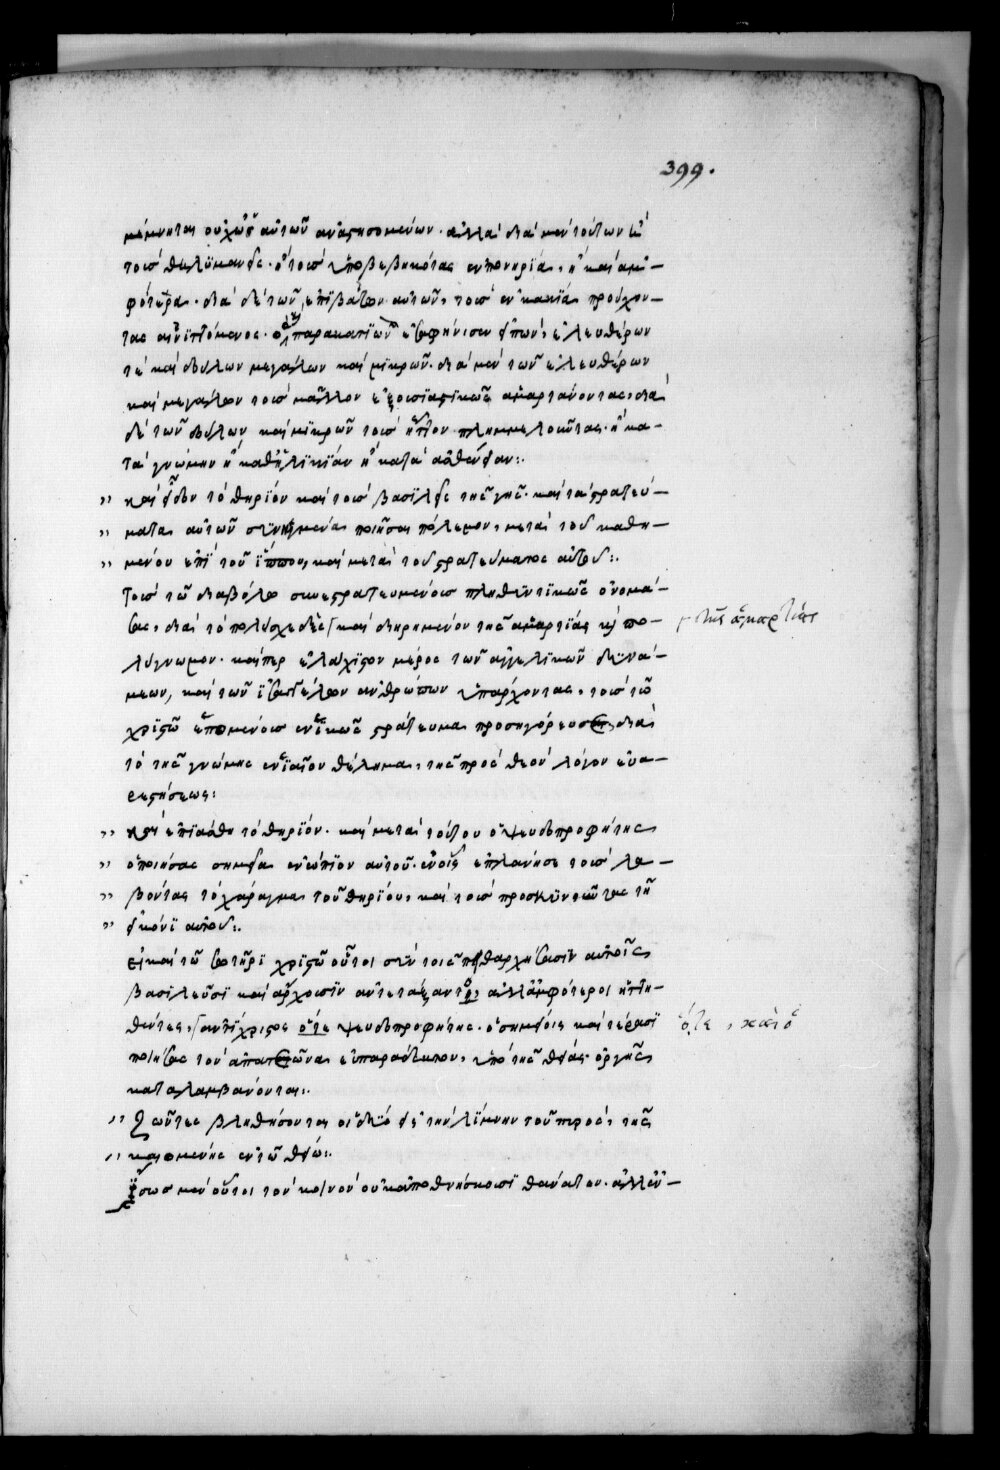 399.
μέμνηται οὐχ ὡς αὐτῶν ἀναστησομένων. ἀλλὰ διὰ μὲν τούτων
τοὺς θηλυμανεῖς. ἢ τοὺς ὑποβεβηκότας ἐν πονηρία, ἢ καὶ ἀμ-
φότερα. διὰ δὲ τῶν ἐπιβατῶν αὐτῶν, τοὺς ἐν κακία προύχον-
τας αἰνιττόμενος. παρακατιὼν ἐσαφήνισεν εἰπών, ἐλευθέρων
τὲ καὶ δούλων μεγάλων καὶ μικρῶν. διὰ μὲν τῶν ἐλευθέρων
καὶ μεγάλων τοὺς μᾶλλον ἐξουσιαστικῶς ἁμαρτάνοντας, διὰ
δὲ τῶν δούλων καὶ μικρῶν τοὺς ἧττον πλημμελοῦντας. ἢ κα-
τὰ γνώμην ἢ καθ' ἡλικίαν ἢ κατὰ ἀσθένειαν:.
,, καὶ εἶδον τὸ θηρίον καὶ τοὺς βασιλεῖς τῆς γῆς. καὶ τὰ στρατεύ-
,, ματα αὐτῶν συνηγμένα ποιῆσαι πόλεμον, μετὰ τοῦ καθη-
,, μένου ἐπὶ τοῦ ἵππου, καὶ μετὰ τοῦ στρατεύματος αὐτοῦ:.
Τοὺς τῶ διαβόλω συνεστρατευμένους πληθυντικῶς ὀνομά-
σας, διὰ τὸ πολυσχεδὲς καὶ διηρημένον τῆς ἁμαρτίας κ πο- τῆς ἁμαρτίας
λύγνωμον. καίπερ ἐλάχιστον μέρος τῶν ἀγγελικῶν δυνά-
μεων, καὶ τῶν ἰσαγγέλων ἀνθρώπων ὑπάρχοντας, τοὺς τῶ
χριστῶ ἑπομένους ἑνικῶς στράτευμα προσηγόρευσε, διὰ
τὸ τῆς γνώμης ἑνιαῖον θέλημα, τῆς πρὸς θεὸν λόγον εὐα-
ρεστήσεως:
,, καὶ ἐπιάσθη τὸ θηρίον. καὶ μετὰ τούτου ὁ ψευδοπροφήτης
,, ὁ ποιήσας σημεῖα ἐνώπιον αὐτοῦ. ἐν οἷς ἐπλάνησε τοὺς λα-
,, βόντας τὸ χάραγμα τοῦ θηρίου, καὶ τοὺς προσκυνοῦντας τῆ
,, εἰκόνι αὐτοῦ:.
Εἰ καὶ τῶ σωτῆρι χριστῶ οὗτοι σὺν τοῖς πειθαρχήσασιν αὐτοῖς
βασιλεῦσι καὶ ἄρχουσιν ἀντετάξαντο, ἀλλ' ἀμφότεροι ἡττη-
θέντες, ἀντίχριστος ὅτε ψευδοπροφήτης. ὁ σημείοις καὶ τέρασι ὅτε, καὶ ὁ
ποιήσας τὸν ἀπατεῶνα εὐπαράδεκτον, ὑπὸ τῆς θείας ὀργῆς
καταλαμβάνονται:.
,, Ζῶντες βληθήσονται οἱ δύο εἰς τὴν λίμνην τοῦ πυρός, τῆς
,, καιομένης ἐν τῶ θείω:.
Ἴσως μὲν οὗτοι τὸν κοινὸν οὐκ ἀποθνήσκουσι θάνατον. ἀλλ' ἐν-